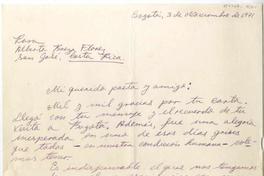 Bogotá, 3 de diciembre de 1971
Rosa
Alberto Baeza Flores,
San José, Costa Rica.
Mi querido poeta y amigo:
Mil y mil gracias por tu carta.
Llegó con tu mensaje y el recuerdo de tu
visita a Bogotá. Además, fue una alegría
inesperada en uno de esos días grises
que todos — en nuestra condición humana — sole-
mos tener.
Es indispensable el que nos tengamos